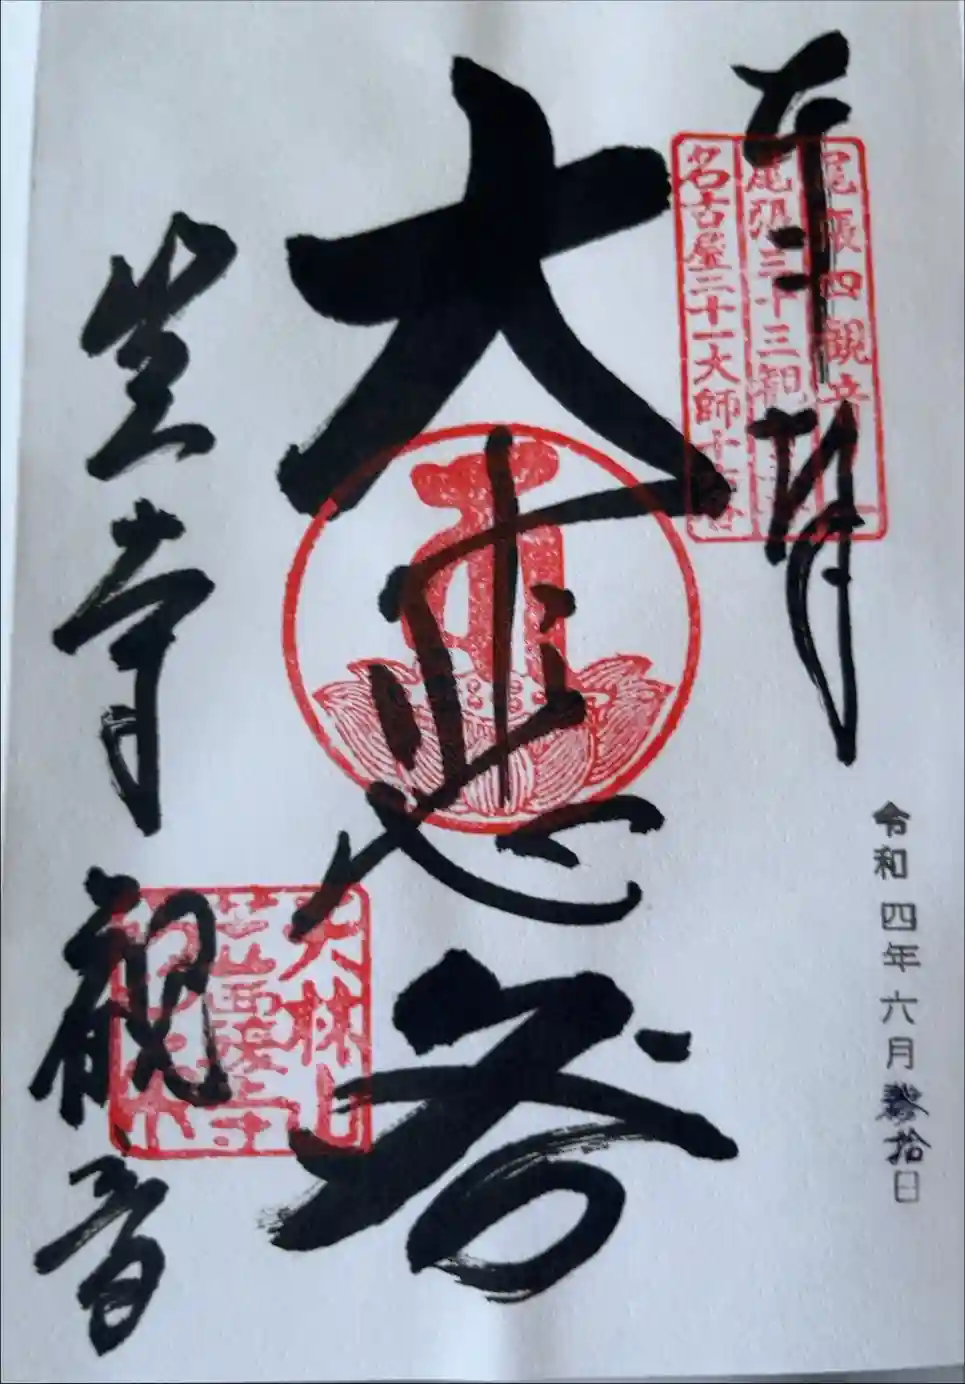 奉拝
尾張四観音
尾張三十三観音
名古屋二十一大師
令和四年六月参拾日
大悲閣
笠寺観音
天林山
笠覆寺